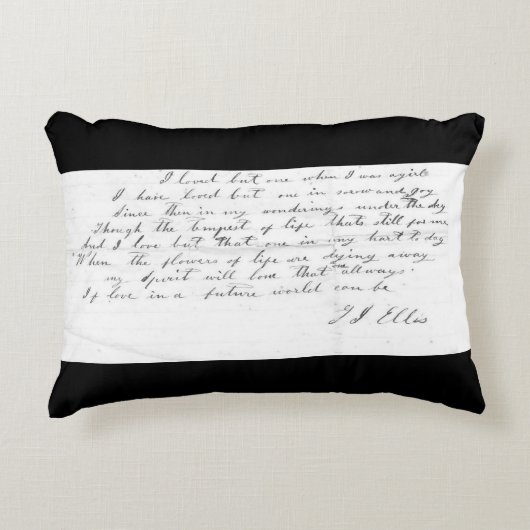 I loved but one when I was a girl
I have loved but one in sorow and goy
Since then in my wonderings under the sky
Though the tempest of life thats still for me
And I love but that one in my hart to day
When the flowers of life are dying away
my spirit will love that one allways
If love in a future world can be
T J Ellis